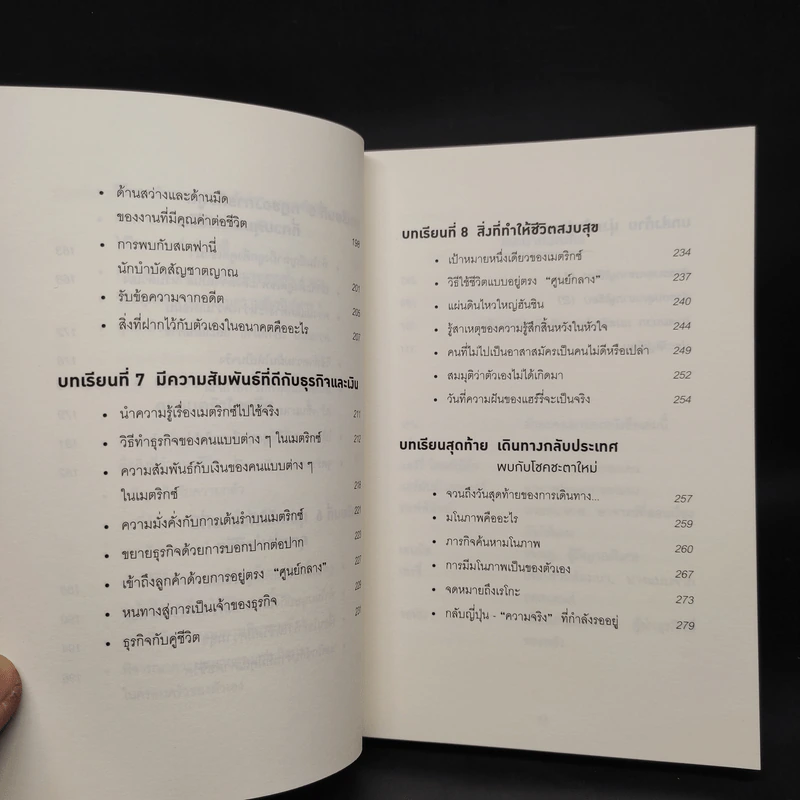 • ด้านสว่างและด้านมืด
ของงานที่มีคุณค่าต่อชีวิต 198
• การพบกับสเตฟานี่
นักบำบัดสัญชาตญาณ 201
• รับข้อความจากอดีต 205
• สิ่งที่ฝากไว้กับตัวเองในอนาคตคืออะไร 207
บทเรียนที่ 7 มีความสัมพันธ์ที่ดีกับธุรกิจและเงิน
• นำความรู้เรื่องเมตริกซ์ไปใช้จริง 211
• วิธีทำธุรกิจของคนแบบต่าง ๆ ในเมตริกซ์ 212
• ความสัมพันธ์กับเงินของคนแบบต่าง ๆ
ในเมตริกซ์ 218
• ความมั่งคั่งกับการเต้นรำบนเมตริกซ์ 221
• ขยายธุรกิจด้วยการบอกปากต่อปาก 223
• เข้าถึงลูกค้าด้วยการอยู่ตรง "ศูนย์กลาง" 227
• หนทางสู่การเป็นเจ้าของธุรกิจ 229
• ธุรกิจกับคู่ชีวิต 231
บทเรียนที่ 8 สิ่งที่ทำให้ชีวิตสงบสุข
• เป้าหมายหนึ่งเดียวของเมตริกซ์ 234
• วิธีใช้ชีวิตแบบอยู่ตรง "ศูนย์กลาง" 237
• แผ่นดินไหวใหญ่ฮันชิน 240
• รู้สาเหตุของความรู้สึกสิ้นหวังในหัวใจ 244
• คนที่ไม่ไปเป็นอาสาสมัครเป็นคนไม่ดีหรือเปล่า 249
• สมมุติว่าตัวเองไม่ได้เกิดมา 252
• วันที่ความฝันของแฮร์รี่จะเป็นจริง 254
บทเรียนสุดท้าย เดินทางกลับประเทศ
พบกับโชคชะตาใหม่
• จวนถึงวันสุดท้ายของการเดินทาง... 257
• มโนภาพคืออะไร 259
• ภารกิจค้นหามโนภาพ 260
• การมีมโนภาพเป็นของตัวเอง 267
• จดหมายถึงเรโกะ 273
• กลับญี่ปุ่น - "ความจริง" ที่กำลังรออยู่ 279